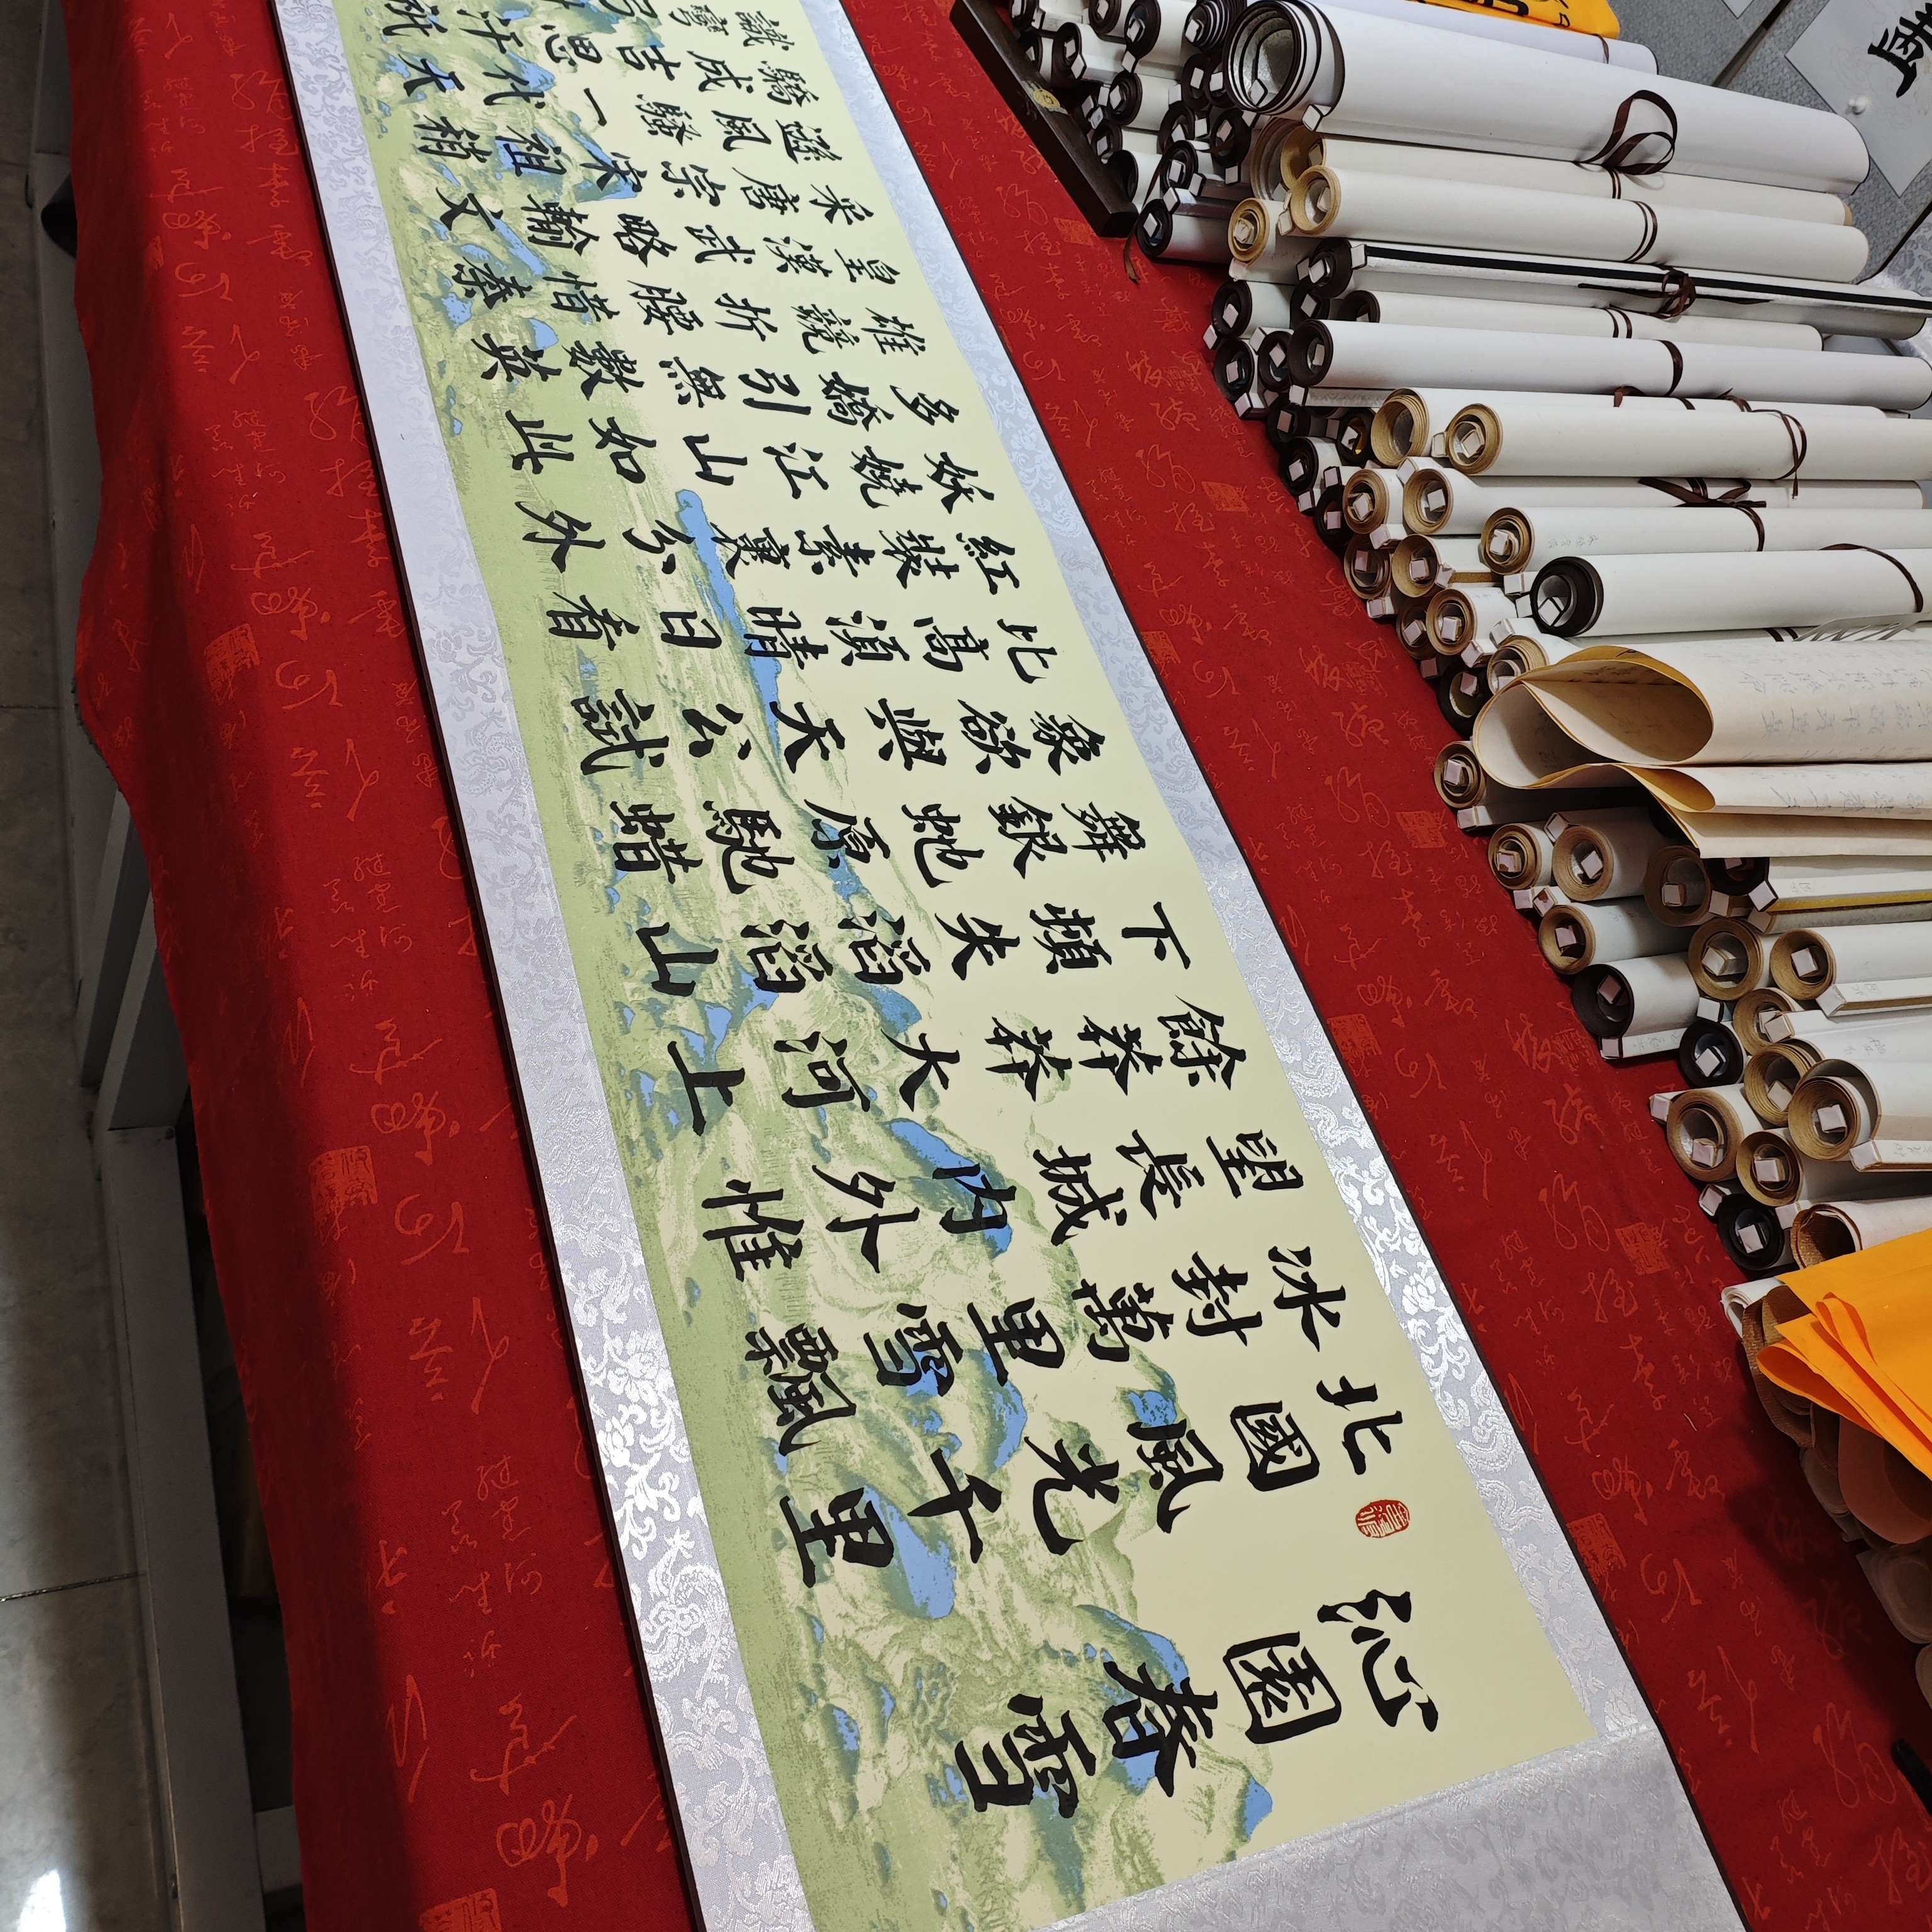 沁園春雪
北國風光千里
冰封萬里雪飄
望長城內外惟
餘莽莽大河上
下頓失滔滔山
舞銀蛇原馳蜡
象欲與天公試
比高須晴日看
紅裝素裹分外
妖嬈江山如此
多嬌引無數英
雄競折腰惜秦
皇漢武略輸文
采唐宗宋祖稍
遜風騷一代天
驕成吉思汗
識彎弓